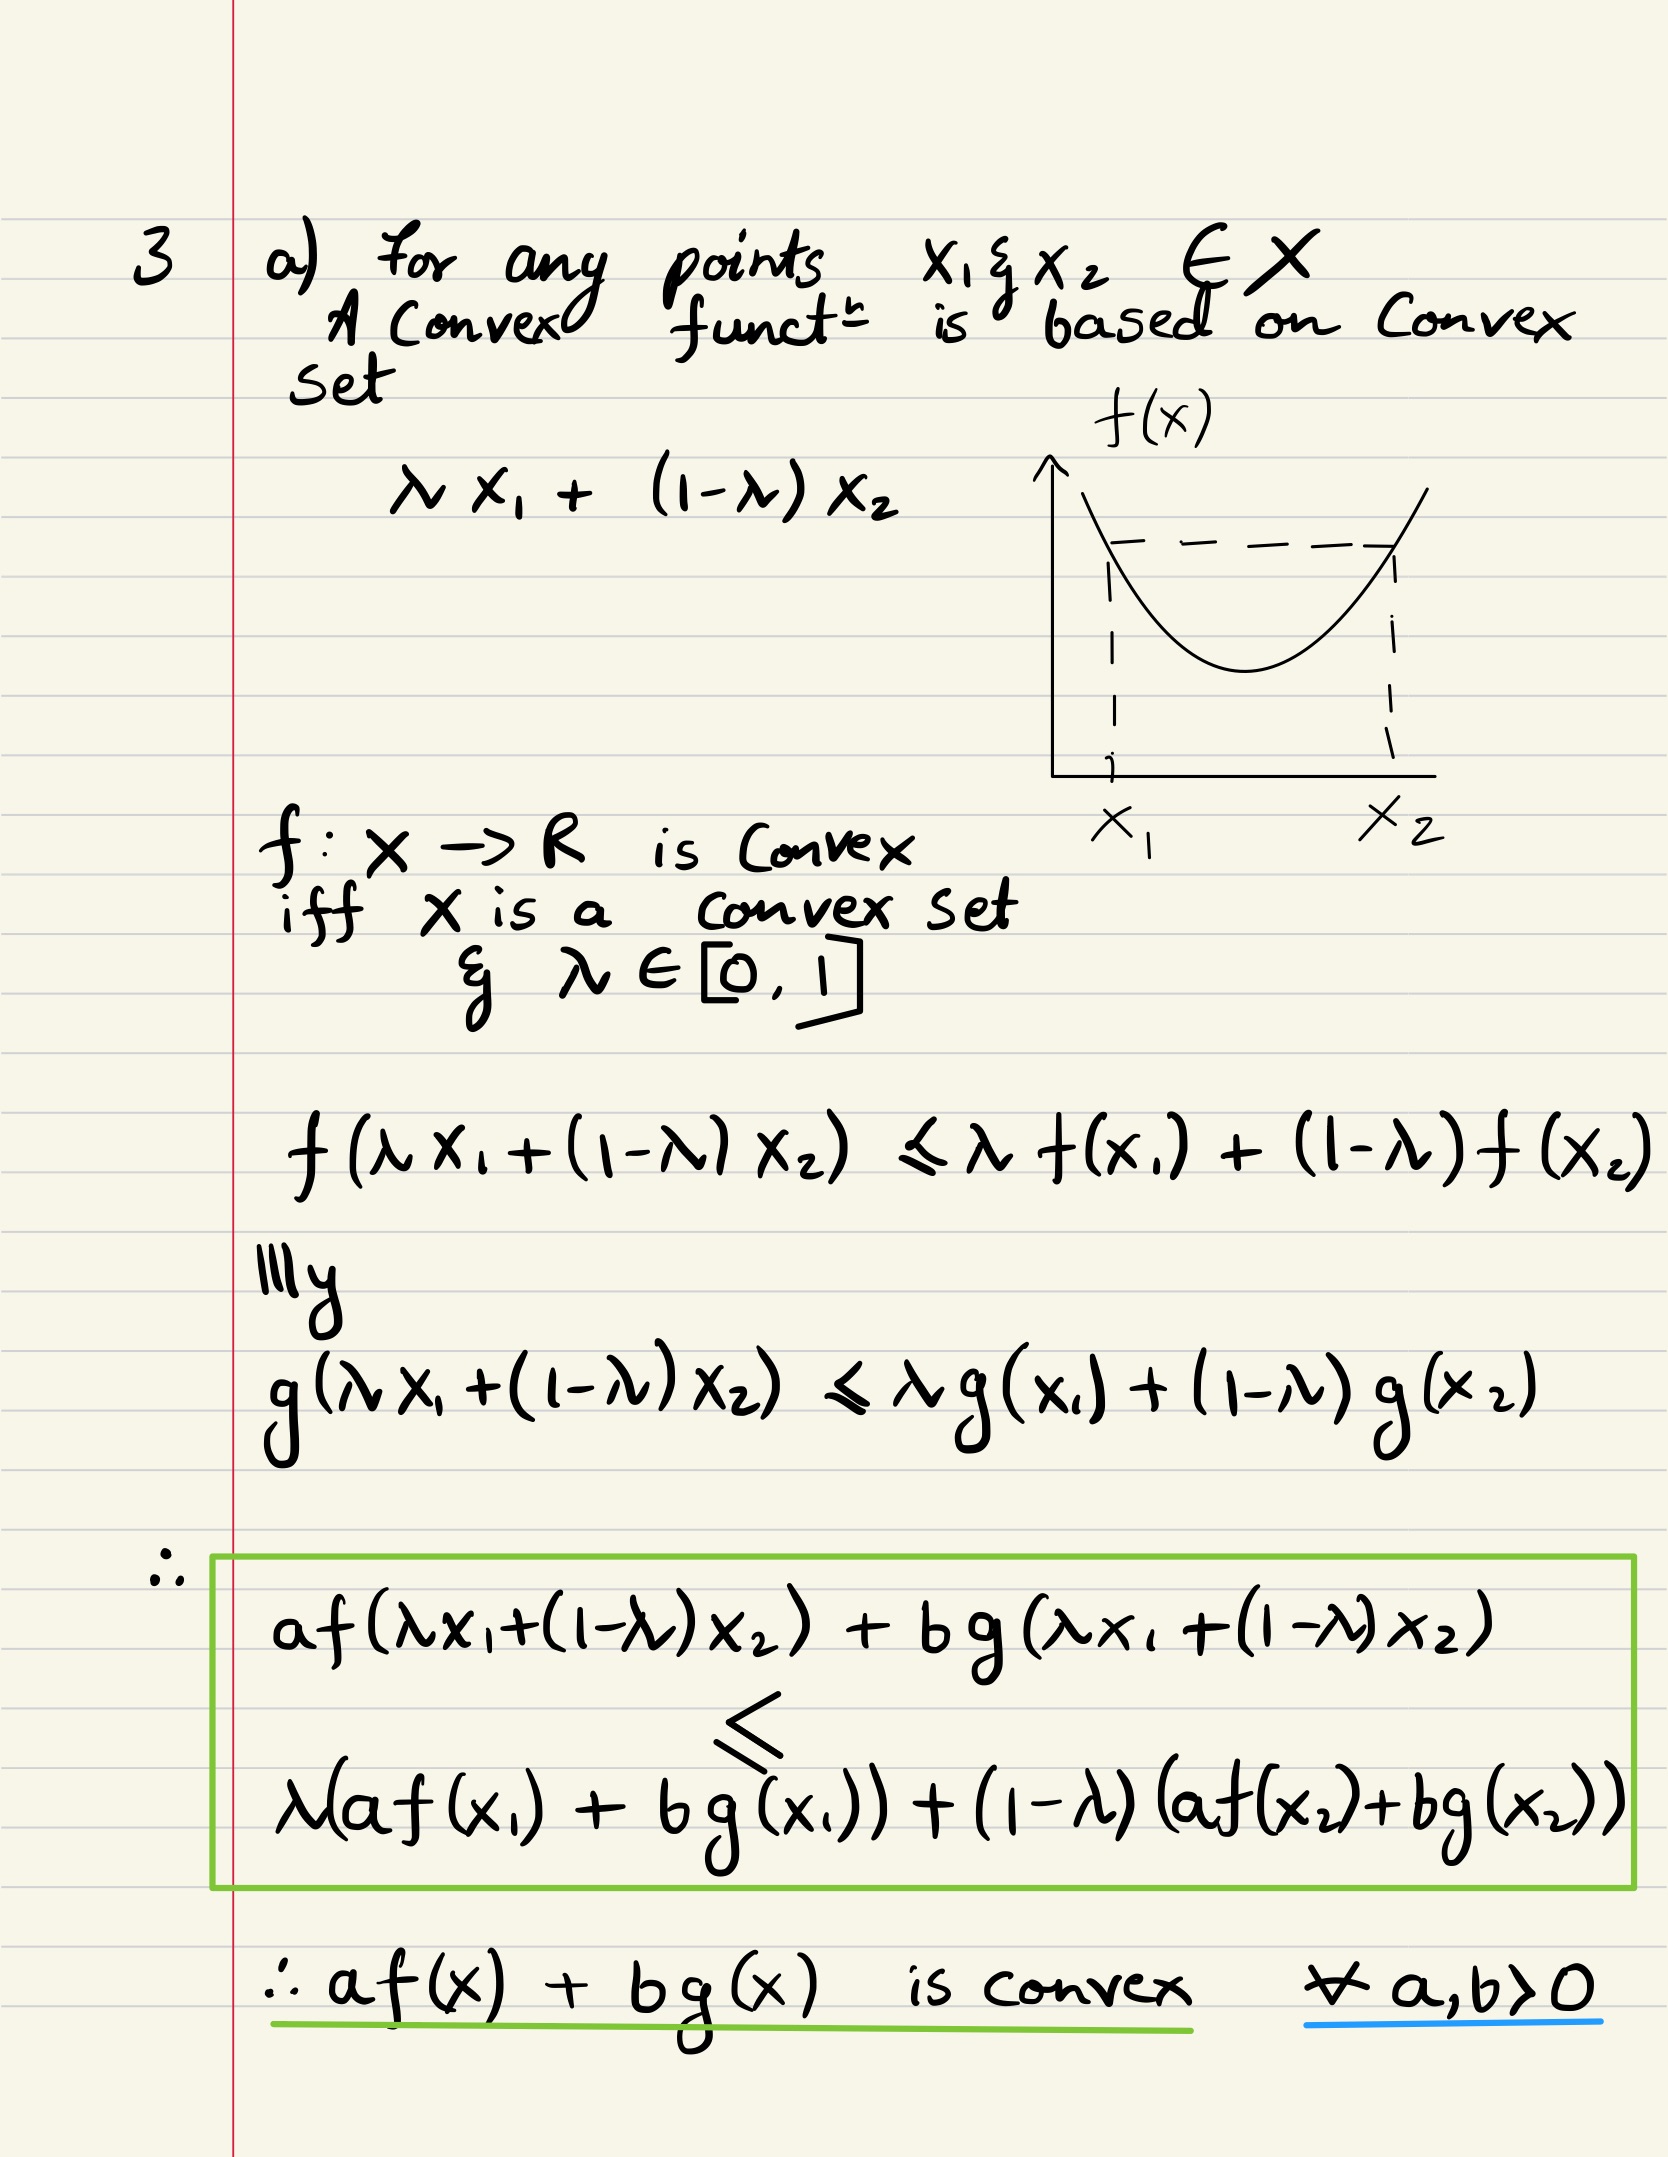 3 a) For any points x₁ & x₂ ∈ X
A Convex functⁿ is based on Convex
set
f(x)
λ x₁ + (1-λ) x₂
x₁ x₂
f: X → R is Convex
iff X is a convex set
& λ ∈ [0, 1]
f(λ x₁ + (1-λ) x₂) ≤ λ f(x₁) + (1-λ) f(x₂)
llly
g(λx₁ + (1-λ)x₂) ≤ λg(x₁) + (1-λ) g(x₂)
∴
af(λx₁+(1-λ)x₂) + bg(λx₁ +(1-λ)x₂)
≤
λ(af(x₁) + bg(x₁)) + (1-λ)(af(x₂)+bg(x₂))
∴ af(x) + bg(x) is convex ∀ a,b>0